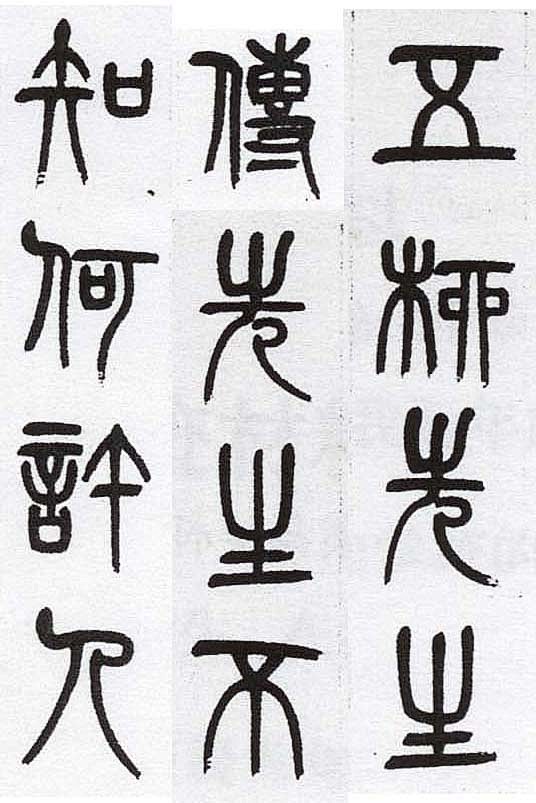 五柳先生
傳先生不
知何許人